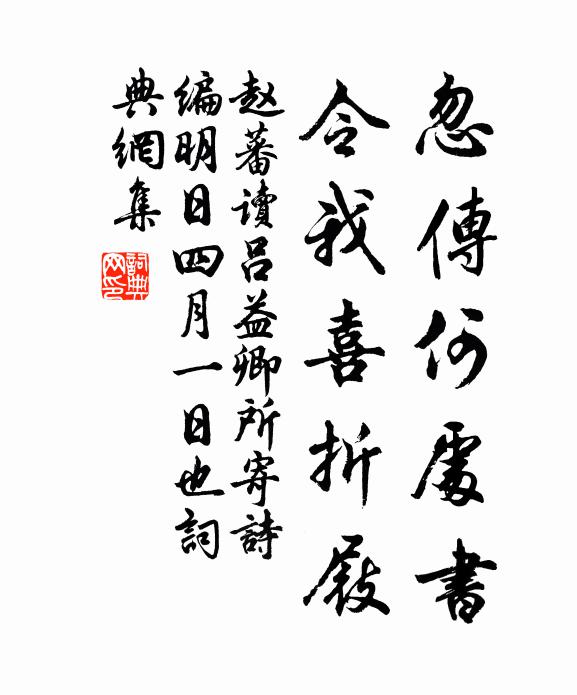 忽傳何處書
令我喜折屐
赵蕃讀呂益卿所寄詩
編明日四月一日也詞
典網集
詞典网印